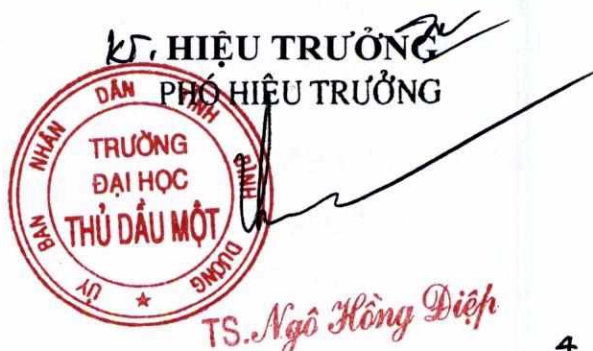 KT. HIỆU TRƯỞNG
PHÓ HIỆU TRƯỞNG
ỦY BAN NHÂN DÂN TỈNH BÌNH DƯƠNG
TRƯỜNG
ĐẠI HỌC
THỦ DẦU MỘT
TS. Ngô Hồng Điệp
4